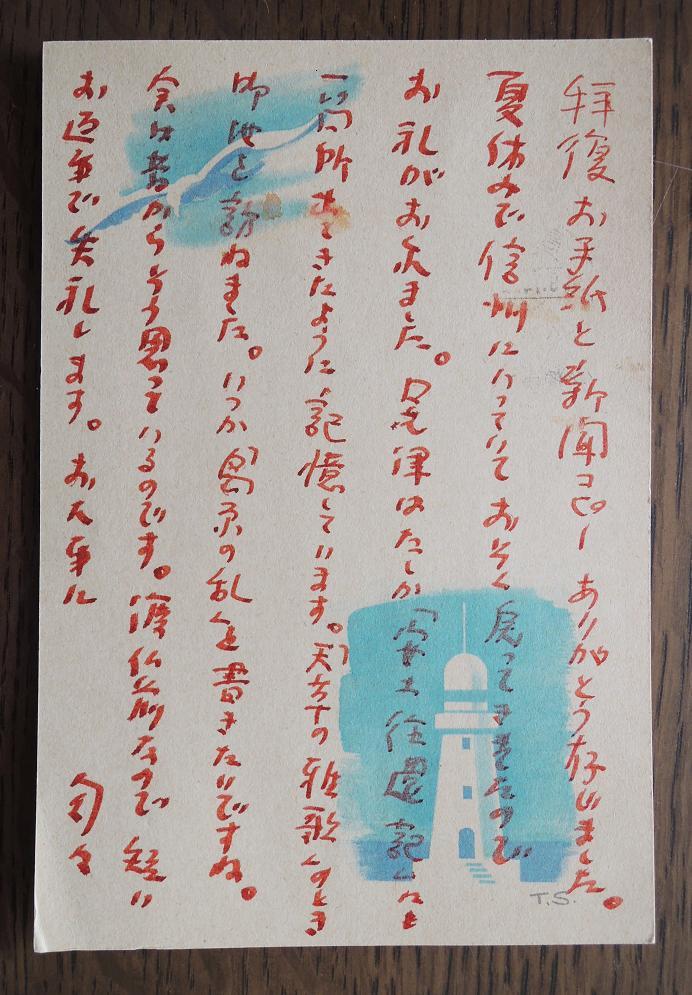 拝復 お手紙と新聞コピー ありがとう存じました。
夏休みで信州にいっていて おそく戻ってきましたので
お礼がおくれました。口之津はたしか「安土往還記」にも
一箇所 出てきたように記憶しています。「天草の雅歌」のとき
御地を訪ねました。いつか「島原の乱」を書きたいですね。
実は昔からそう思っているのです。渡仏前なので 短い
お返事で失礼します。お大事に 匆々
T.S.